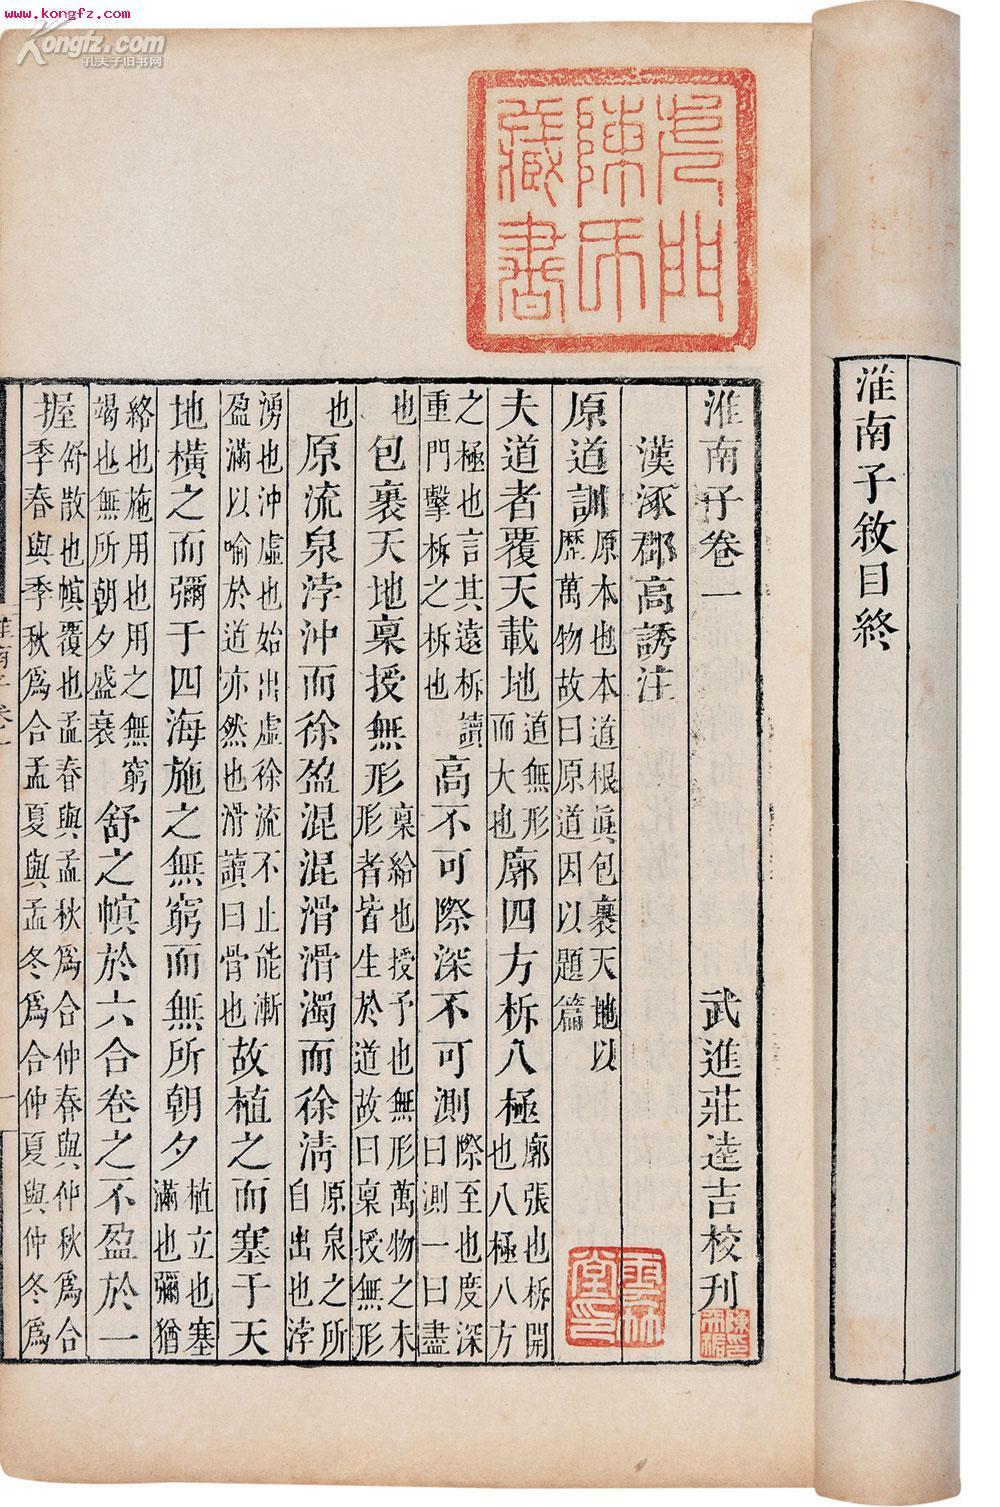 www.kongfz.com
Kongfz.com
孔夫子旧书网
淮南子敘目終
門陳氏藏書
淮南子卷一 武進莊逵吉校刊
漢涿郡高誘注
原道訓 原本也本道根眞包裹天地以歷萬物故曰原道因以題篇
夫道者覆天載地 道無形而大也 廓四方柝八極 廓張也柝開也八極八方
之極也言其遠柝讀重門擊柝之柝也 高不可際深不可測 際至也度深曰測一曰盡
也 包裹天地稟授無形 稟給也授予也無形萬物之未形者皆生於道故曰稟授無形
也 原流泉浡沖而徐盈混混滑滑濁而徐淸 原泉之所自出也浡
湧也沖虛也始出虛徐流不止能漸盈滿以喻於道亦然也滑讀曰骨也 故植之而塞于天
地橫之而彌于四海施之無窮而無所朝夕 植立也塞滿也彌猶
絡也施用也用之無窮竭也無所朝夕盛衰 舒之幎於六合卷之不盈於一
握 舒散也幎覆也孟春與孟秋爲合仲春與仲秋爲合季春與季秋爲合孟夏與孟冬爲合仲夏與仲冬爲